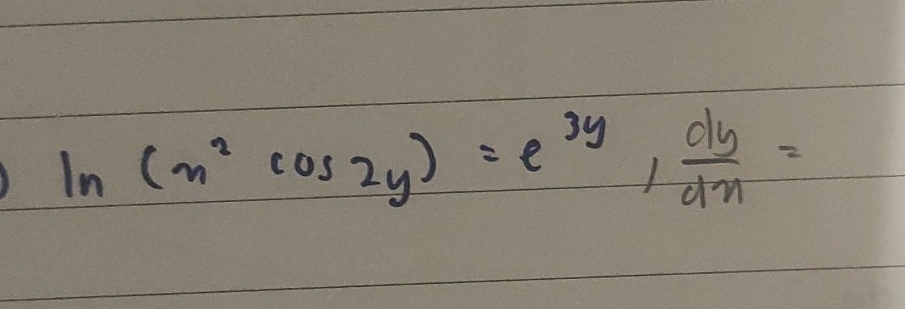 ) ln (x² cos 2y) = e^{3y} , dy/dx =